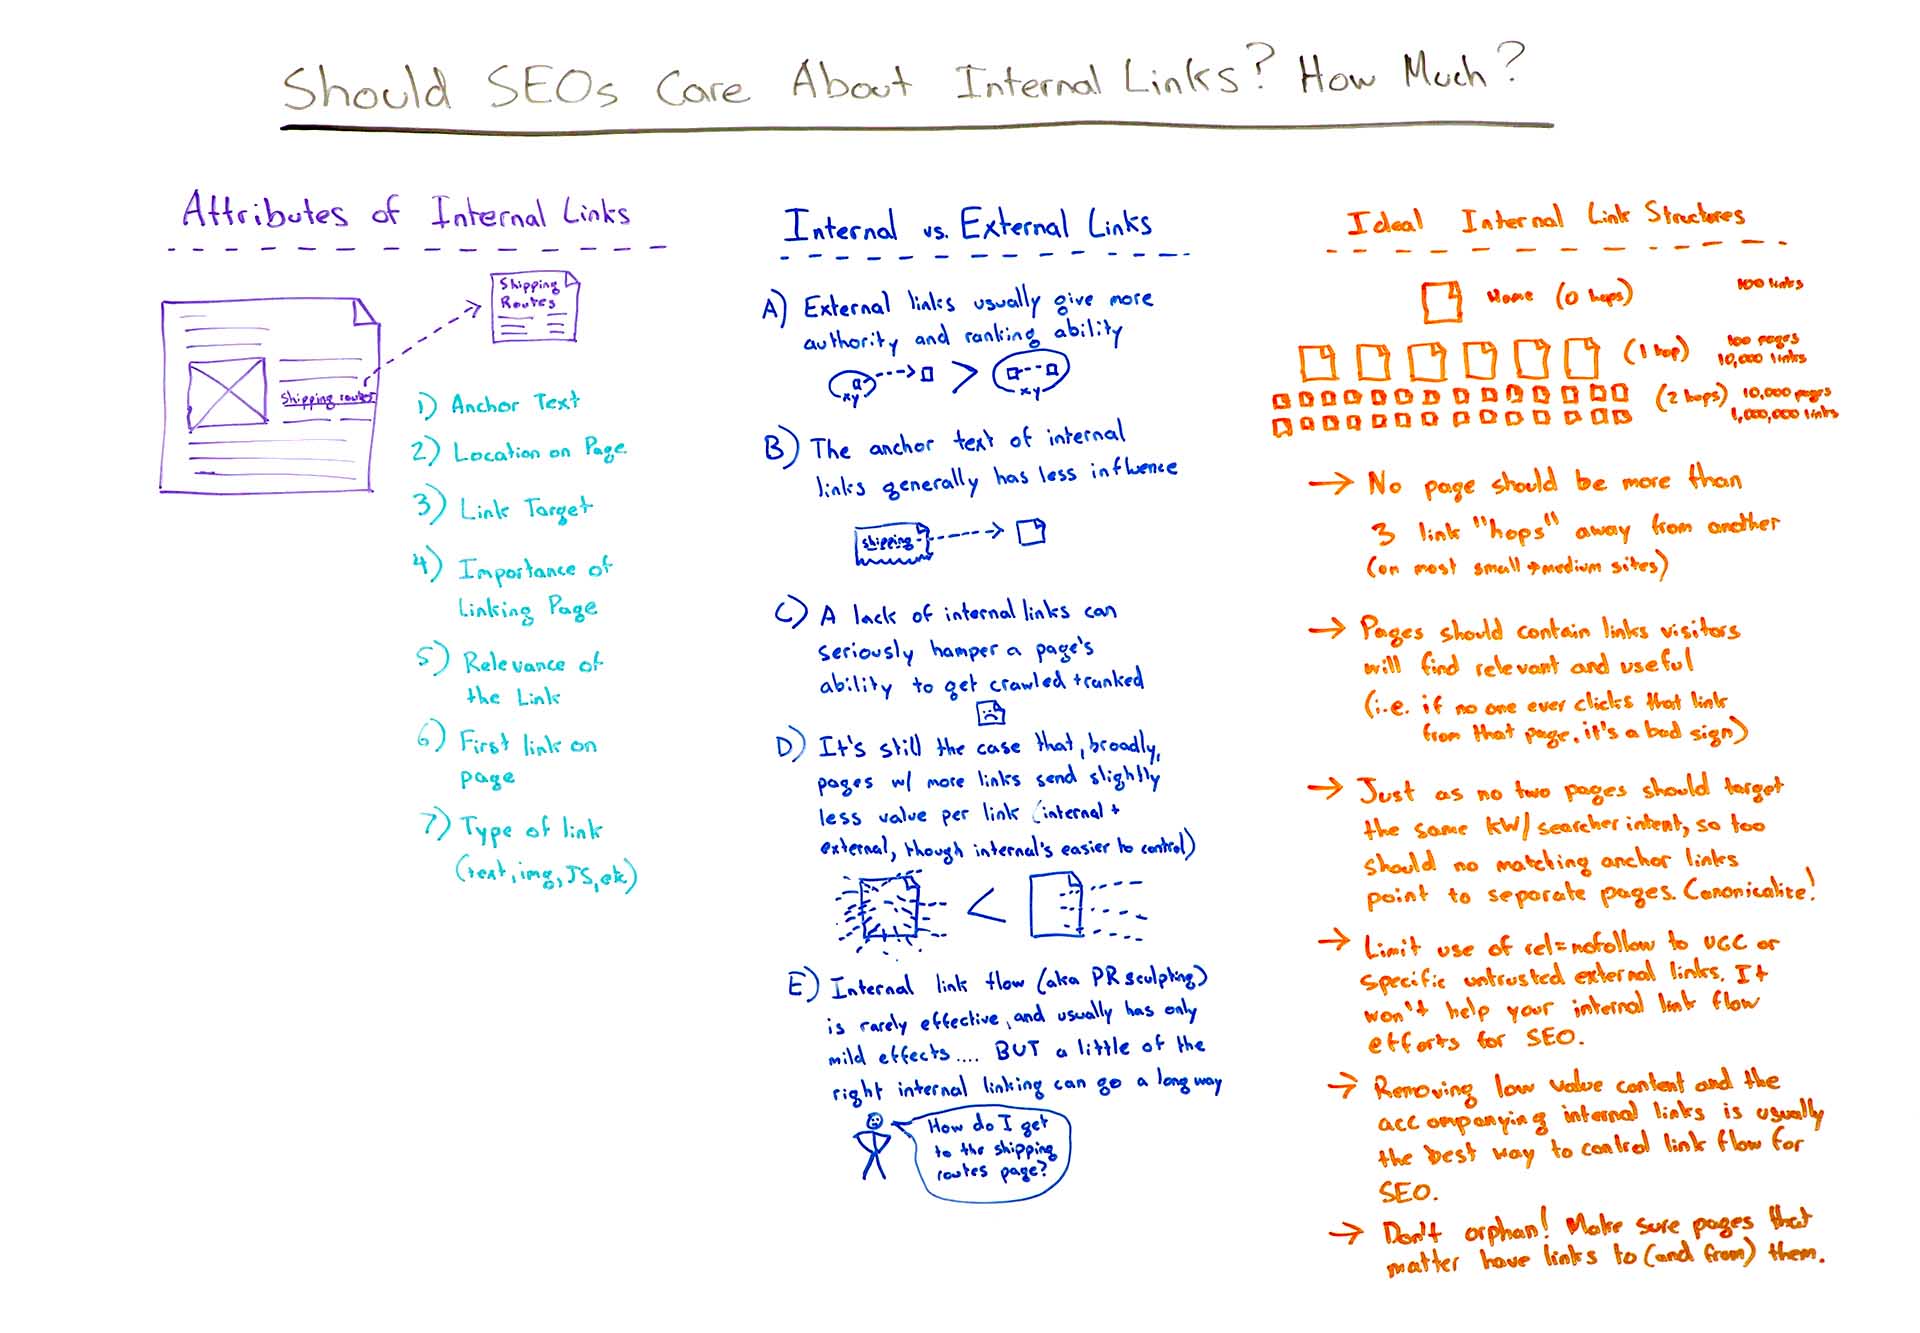 Should SEOs Care About Internal Links? How Much?
Attributes of Internal Links
Shipping
Routes
Shipping routes
1) Anchor Text
2) Location on Page
3) Link Target
4) Importance of
Linking Page
5) Relevance of
the Link
6) First link on
page
7) Type of link
(text, img, JS, etc)
Internal vs. External Links
A) External links usually give more
authority and ranking ability
xy
>
xy
B) The anchor text of internal
links generally has less influence
shipping
C) A lack of internal links can
seriously hamper a page's
ability to get crawled + ranked
D) It's still the case that, broadly,
pages w/ more links send slightly
less value per link (internal +
external, though internal's easier to control)
<
E) Internal link flow (aka PR sculpting)
is rarely effective, and usually has only
mild effects.... BUT a little of the
right internal linking can go a long way
How do I get
to the shipping
routes page?
Ideal Internal Link Structures
Home (0 hops) 100 links
(1 hop) 100 pages
10,000 links
(2 hops) 10,000 pages
1,000,000 links
→ No page should be more than
3 link "hops" away from another
(on most small → medium sites)
→ Pages should contain links visitors
will find relevant and useful
(i.e. if no one ever clicks that link
from that page, it's a bad sign)
→ Just as no two pages should target
the same KW/searcher intent, so too
should no matching anchor links
point to separate pages. Canonicalize!
→ Limit use of rel=nofollow to UGC or
specific untrusted external links. It
won't help your internal link flow
efforts for SEO.
→ Removing low value content and the
accompanying internal links is usually
the best way to control link flow for
SEO.
→ Don't orphan! Make sure pages that
matter have links to (and from) them.